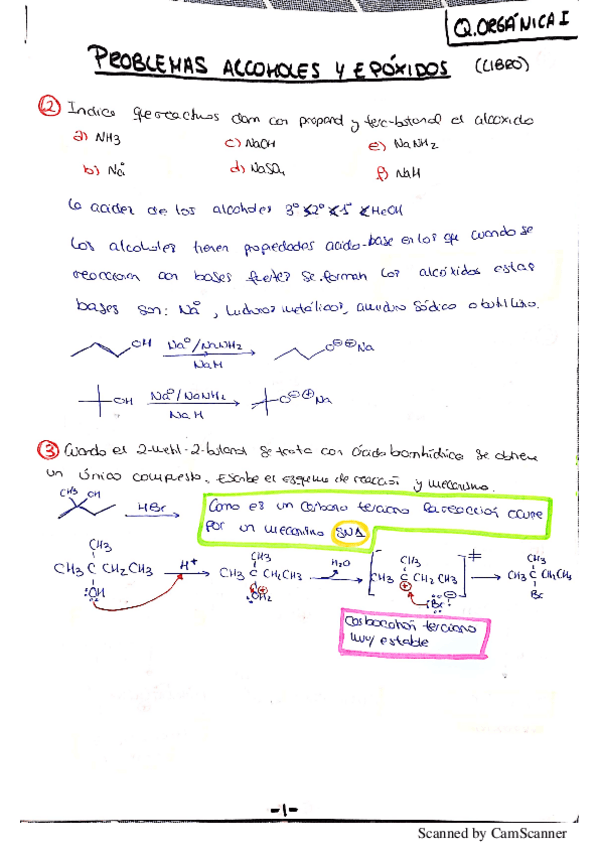 Q.ORGÁNICA I
PROBLEMAS ALCOHOLES Y EPÓXIDOS (LIBRO)
2 Indica que reactivos dan con propanol y terc-butanol el alcoxido
a) NH3 c) NaOH e) NaNH2
b) Na⁰ d) NaSO4 f) NaH
La acidez de los alcoholes 3º < 2º < 1º < MeOH
Los alcoholes tienen propiedades acido-base en los que cuando se
reaccionan con bases fuertes se forman los alcóxidos estas
bases son: Na⁰, hidruros metálicos, amiduro sódico o butillitio.
OH Na⁰/NaNH2 O⊖⊕Na
NaH
OH Na⁰/NaNH2 O⊖⊕Na
NaH
3 Cuando el 2-metil-2-butanol se trata con ácido bromhídrico se obtiene
un único compuesto. Escribe el esquema de reacción y mecanismo.
CH3 OH HBr
Como es un carbono terciario la reacción ocurre
por un mecanismo SN1
CH3 CH3 CH3 ‡ CH3
CH3 C CH2CH3 H+ CH3 C CH2CH3 H2O CH3 C CH2 CH3 CH3 C CH2CH3
:OH ⊕ OH2 ⊕ :Br: ⊖ Br
Carbocatión terciario
muy estable
-1-
Scanned by CamScanner